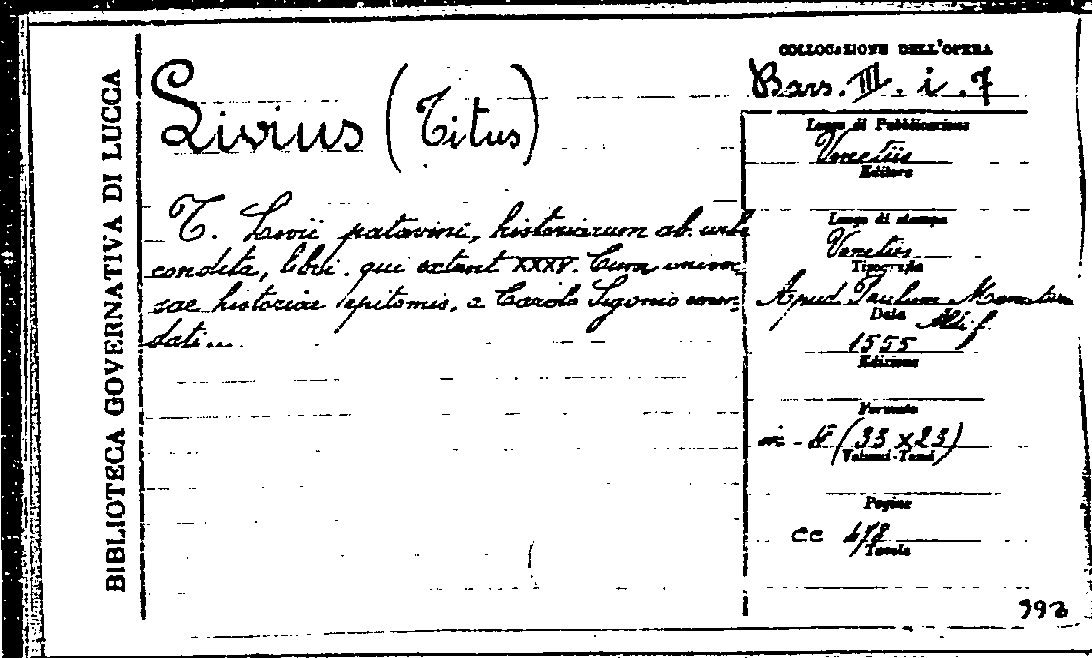 BIBLIOTECA GOVERNATIVA DI LUCCA
Livius (Titus)
T. Livii patavini, historiarum ab urbe
condita, libri qui extant XXXV. Cum univer-
sae historiae epitomis, a Carolo Sigonio emen-
dati...
COLLOCAZIONE DELL'OPERA
Bars. III. i. 7
Luogo di Pubblicazione
Venetiis
Editore
Luogo di stampa
Venetiis
Tipografia
Apud Paulum
Data
Aldi f.
1555
Edizione
Formato
in - (33 x 23)
Volumi-Tomi
Pagine
cc 478
Tavole